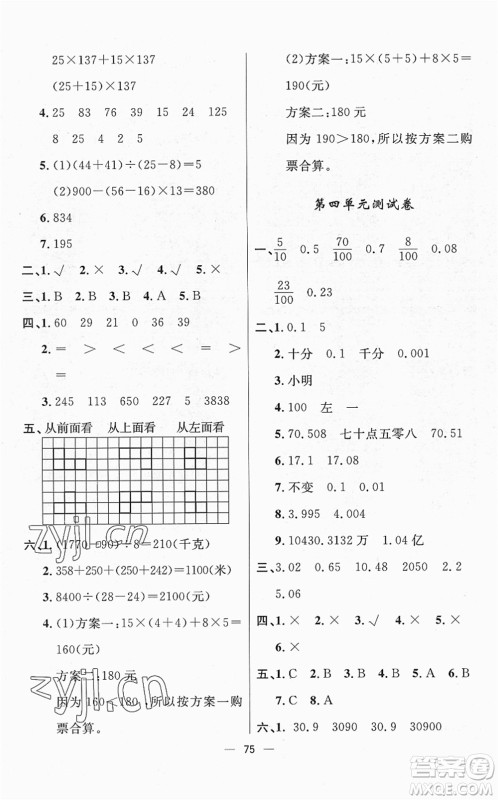 25×137+15×137
(25+15)×137
4. 25 83 76 39 14 24 125
8 25 4 2 5
5. (1)(44+41)÷(25-8)=5
(2)900-(56-16)×13=380
6. 834
7. 195
二、1. √ 2. × 3. √ 4. × 5. ×
三、1. B 2. A 3. B 4. B 5. A
四、1. 60 29 21 0 36 39
2. = > < < > =
3. 245 113 650 227 5 3838
五、从前面看 从上面看 从左面看
六、1. (1770-90)÷8=210(千克)
2. 358+250+(250+242)=1100(米)
3. 8400÷(28-24)=2100(元)
4. (1)方案一:15×(4+4)+8×5=
160(元)
方案二:180元
因为160<180,所以按方案一购
票合算。
(2)方案一:15×(5+5)+8×5=
190(元)
方案二:180元
因为190>180,所以按方案二购
票合算。
第四单元测试卷
一、5/10 0.5 70/100 0.7 8/100 0.08
23/100 0.23
二、1. 0.1 5
2. 十分 0.1 千分 0.001
3. 小明
4. 100 左 一
5. 70.508 七十点五零八 70.51
6. 17.1 17.08
7. 不变 0.01
8. 3.995 4.004
9. 10430.3132万 1.04亿
三、3.02 50.65 8.28 5.2
5.06
四、1. × 2. × 3. √ 4. × 5. ×
6. ×
五、1. C 2. B 3. B 4. A 5. B
6. C
六、1. 30.9 3090 30.9 30900
75
zyjl.cn
zyjl.cn
答案圈
MXQE.COM